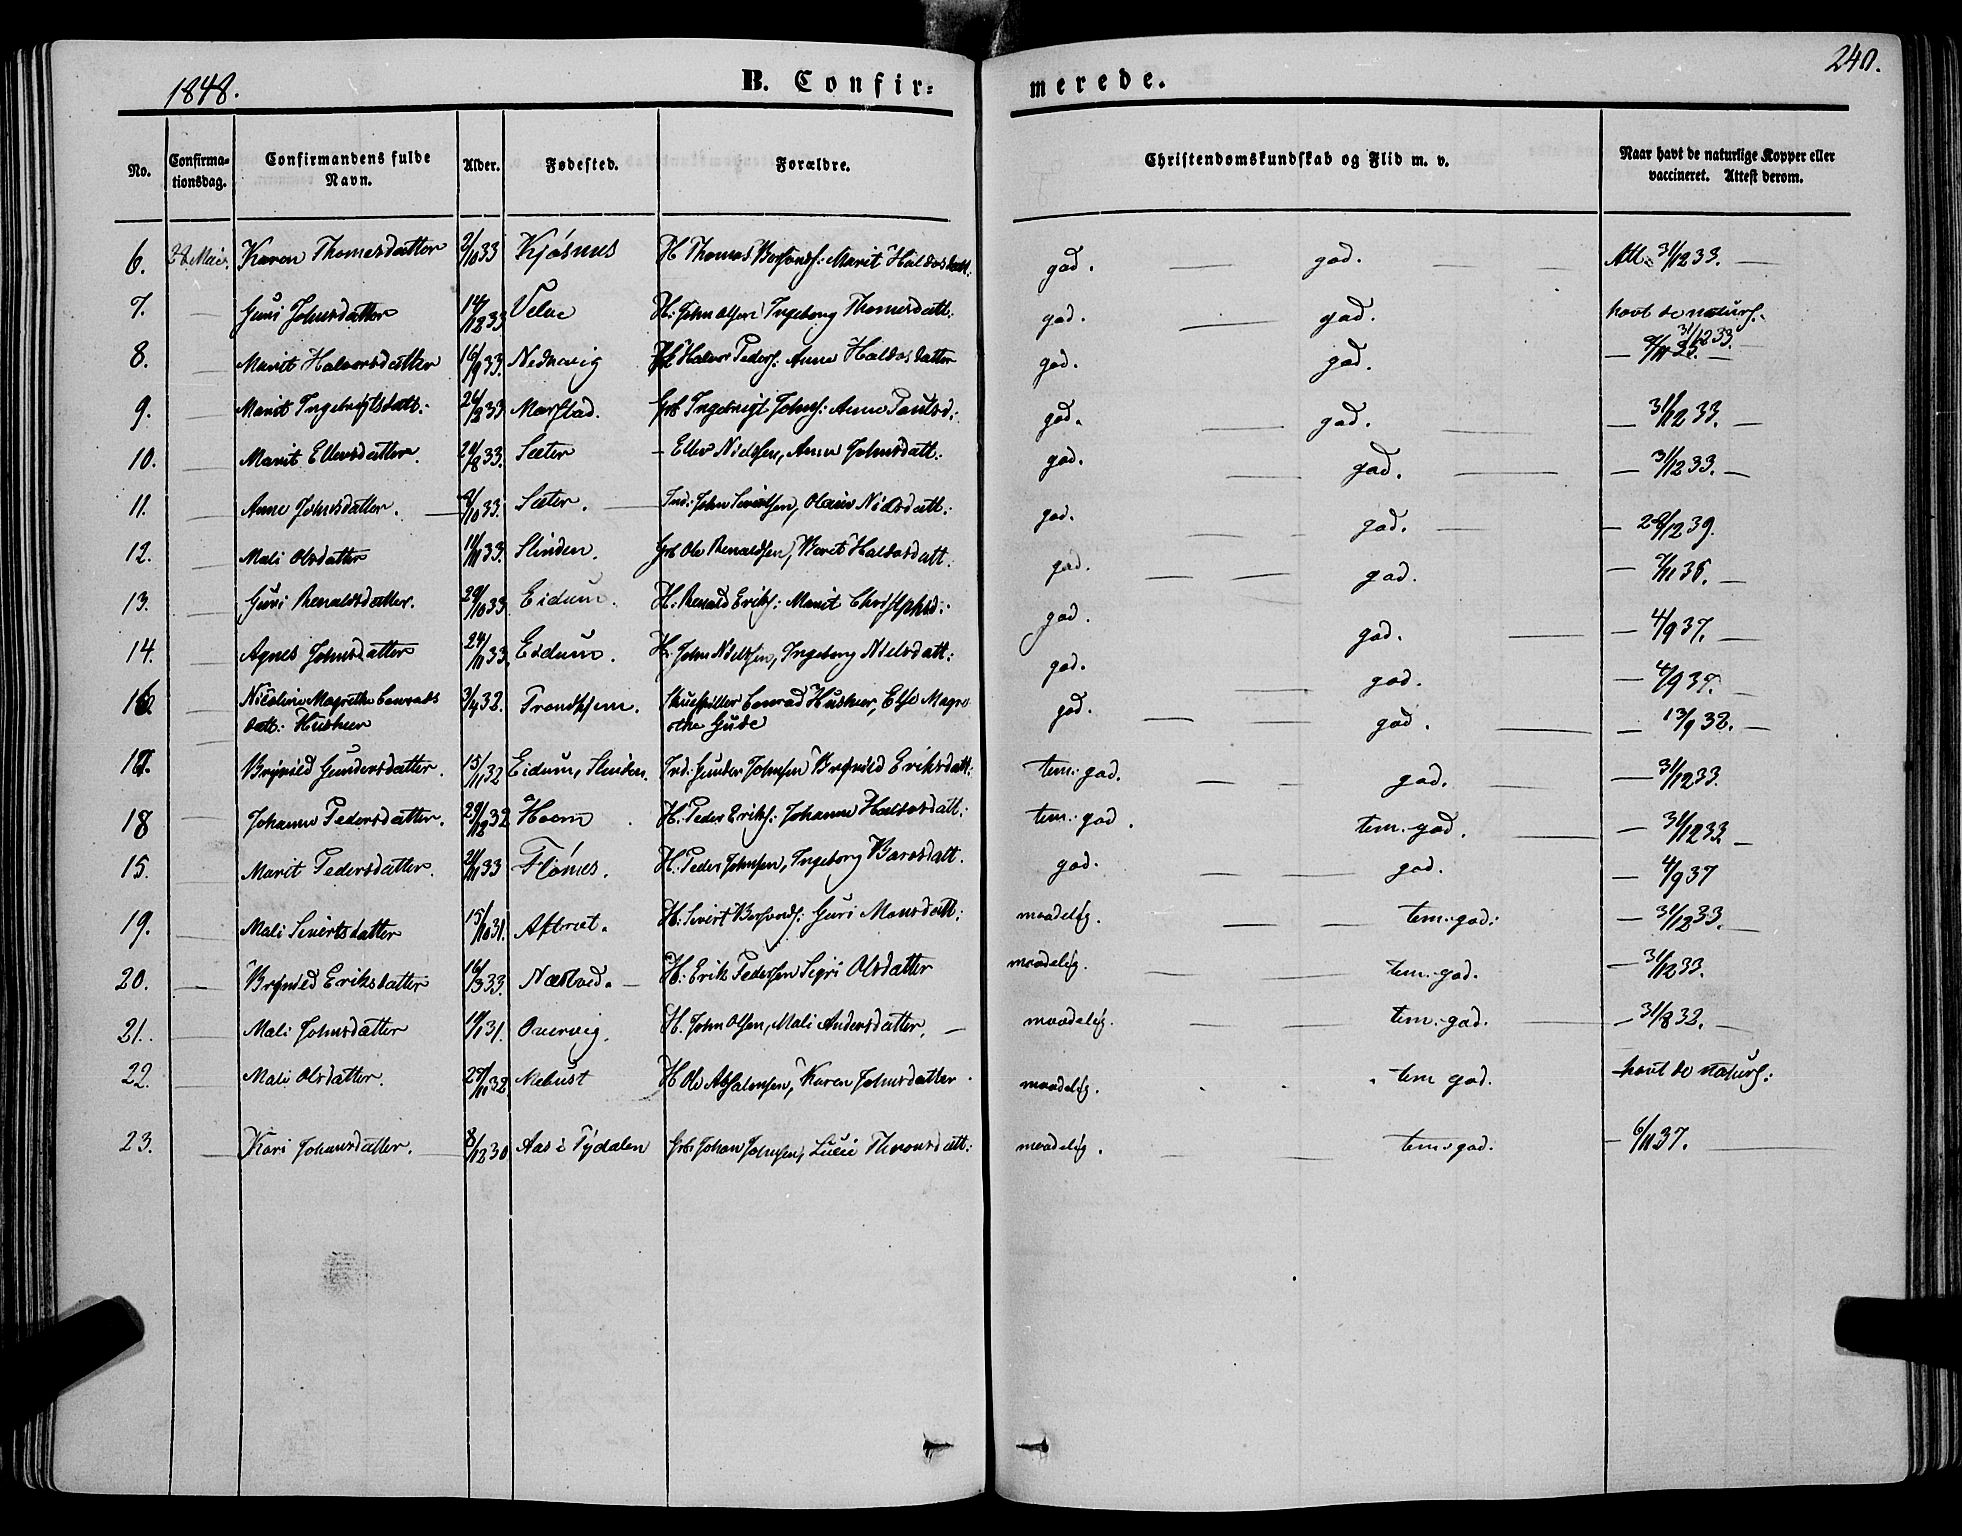 1848.
B. Confirmerede.
240.
No. Confirmationsdag. Confirmandens fulde Navn. Alder. Fødested. Forældre. Christendomskundskab og Flid m. v. Naar havt de naturlige Kopper eller vaccineret. Attest derom.
6. Mai. Karen Thomesdatter 2/10 33 Kjøsnes H Thomas Marit god. god. Att. 31/12 33.
7. Guri Johnsdatter 14/12 33 Velve H: John Olsen Ingeborg Thomesdatt: god. god. havt de naturl. 31/12 33.
8. Marit Halvorsdatter 16/9 33. Nedrevig Halvor Peders: Anne Haldosdatter god. god.
9. Marit Ingebrigtsdatt: 33 Marstad. Grb Ingebrigt Johns: Anne Paulsd: god. god. 31/12 33.
10. Marit Ellevsdatter. 20/8 33. Sæter - Ellev Nielsen, Anne Johnsdatt: god. god. 31/12 33.
11. Anne Johnsdatter. /10 33. Sæter. Ind: John Sivertsen, Nielsdatt: god. god. 28/12 39.
12. Mali Olsdatter 11/11 33. Slinden. Grb Ole Renaldsen, Beret Haldosdatt. god. god. 7/11 35.
13. Guri Renaldsdatter. 29/10 33. Eidum. H: Renald Eriks: Marit god. god. 4/9 37.
14. Agnes Johnsdatter 24/11 33. Eidum. H. John Nielsen, Ingeborg Nielsdatt: god. god. 4/9 37.
16. Nicoline Magrethe Conrads 3/4 32. Trondhjem. Skuespiller Conrad Huskeer, Else Magre god. god. 13/9 32.
datt: Huskeer the Gude
17. Brynild Gundersdatter. 15/11 32 Eidum, Slinden. Ind: Gunder Johnsen Brynild Eriksdatt: tem: god. god. 31/12 33.
18 Johanne Pedersdatter. 29/12 32 Hoem H: Peder Eriks: Johanne Haldosdatt: tem: god. tem. god. 31/12 33.
15. Marit Pedersdatter. 21/11 33 Flønes. H. Peder Johnsen, Ingeborg Baardsdatt. god. god. 4/9 37
19. Mali Sivertsdatter 15/10 31. Aftret. H: Sivert Guri Monsdatt: maadelig. tem: god: 31/12 33.
20. Brynild Eriksdatter 16/3 33. Næsvold. H: Erik Pedersen Sigri Olsdatter maadelig. tem. god. 31/12 33.
21. Mali Johnsdatter 31. Overvig. H. John Olsen, Mali Andersdatter, maadelig. tem. god. 31/8 32.
22. Mali Olsdatter. 27/11 32. Mebust H Ole Absalonsen, Karen Johnsdatter. maadelig. tem god. havt de naturl:
23. Kari Johansdatter. 8/12 30 Aas i Tydalen Grb: Johan Johnsen, Lucie Thronsdatt: maadelig. tem: god. 6/11 37.